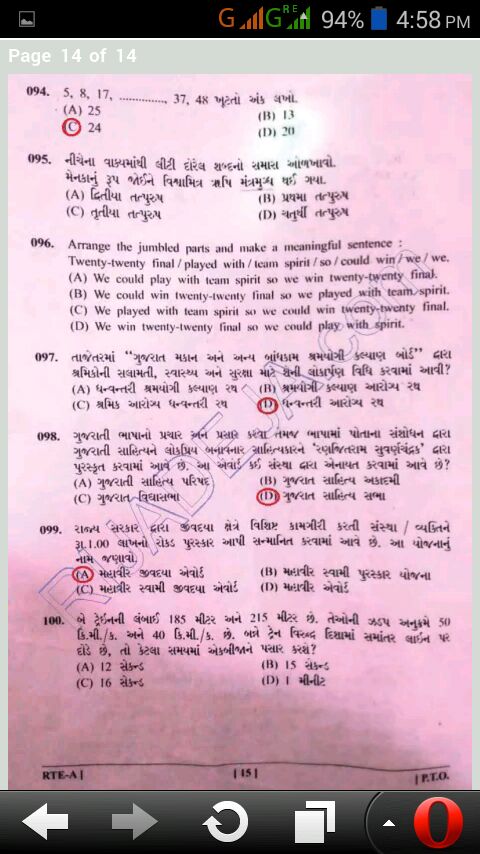 G G R E 94% 4:58 PM
Page 14 of 14
094. 5, 8, 17, .............., 37, 48 ખૂટતો અંક લખો.
(A) 25 (B) 13
(C) 24 (D) 20
095. નીચેના વાક્યમાંથી લીટી દોરેલ શબ્દનો સમાસ ઓળખાવો.
મેનકાનું રૂપ જોઈને વિશ્વામિત્ર ઋષિ મંત્રમુગ્ધ થઈ ગયા.
(A) દ્વિતીયા તત્પુરુષ (B) પ્રથમા તત્પુરુષ
(C) તૃતીયા તત્પુરુષ (D) ચતુર્થી તત્પુરુષ
096. Arrange the jumbled parts and make a meaningful sentence :
Twenty-twenty final / played with / team spirit / so / could win / we / we.
(A) We could play with team spirit so we win twenty-twenty final.
(B) We could win twenty-twenty final so we played with team spirit.
(C) We played with team spirit so we could win twenty-twenty final.
(D) We win twenty-twenty final so we could play with spirit.
097. તાજેતરમાં “ગુજરાત મકાન અને અન્ય બાંધકામ શ્રમયોગી કલ્યાણ બોર્ડ” દ્વારા
શ્રમિકોની સલામતી, સ્વાસ્થ્ય અને સુરક્ષા માટે શેની લોકાર્પણ વિધિ કરવામાં આવી?
(A) ધન્વન્તરી શ્રમયોગી કલ્યાણ રથ (B) શ્રમયોગી કલ્યાણ આરોગ્ય રથ
(C) શ્રમિક આરોગ્ય ધન્વન્તરી રથ (D) ધન્વન્તરી આરોગ્ય રથ
098. ગુજરાતી ભાષાનો પ્રચાર અને પ્રસાર કરવા તેમજ ભાષામાં પોતાના સંશોધન દ્વારા
ગુજરાતી સાહિત્યને લોકપ્રિય બનાવનાર સાહિત્યકારને ‘રણજિતરામ સુવર્ણચંદ્રક’ દ્વારા
પુરસ્કૃત કરવામાં આવે છે. આ એવોર્ડ કઈ સંસ્થા દ્વારા એનાયત કરવામાં આવે છે?
(A) ગુજરાતી સાહિત્ય પરિષદ (B) ગુજરાત સાહિત્ય અકાદમી
(C) ગુજરાત વિદ્યાસભા (D) ગુજરાત સાહિત્ય સભા
099. રાજ્ય સરકાર દ્વારા જીવદયા ક્ષેત્રે વિશિષ્ટ કામગીરી કરતી સંસ્થા / વ્યક્તિને
રૂા.1.00 લાખનો રોકડ પુરસ્કાર આપી સન્માનિત કરવામાં આવે છે. આ યોજનાનું
નામ જણાવો.
(A) મહાવીર જીવદયા એવોર્ડ (B) મહાવીર સ્વામી પુરસ્કાર યોજના
(C) મહાવીર સ્વામી જીવદયા એવોર્ડ (D) મહાવીર એવોર્ડ
100. બે ટ્રેઈનની લંબાઈ 185 મીટર અને 215 મીટર છે. તેઓની ઝડપ અનુક્રમે 50
કિ.મી./ક. અને 40 કિ.મી./ક. છે. બન્ને ટ્રેન વિરુદ્ધ દિશામાં સમાંતર લાઈન પર
દોડે છે, તો કેટલા સમયમાં એકબીજાને પસાર કરશે?
(A) 12 સેકન્ડ (B) 15 સેકન્ડ
(C) 16 સેકન્ડ (D) 1 મીનીટ
RTE-A] [15] [P.T.O.